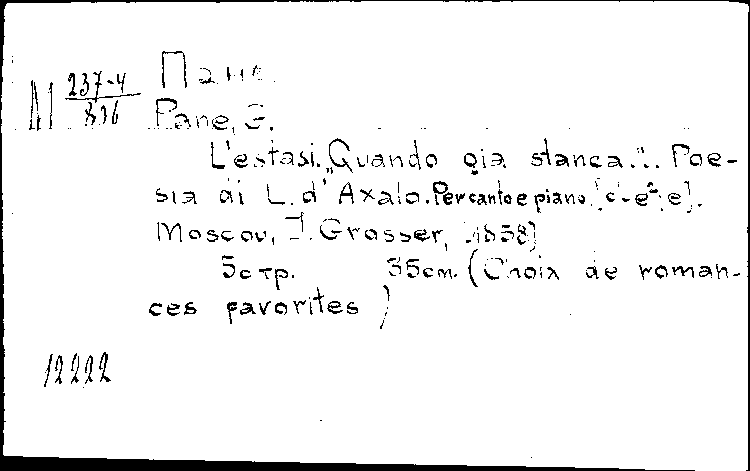 М 237-4
836
Пане.
Pane, G.
L'estasi. „Quando gia stanca..". Poe-
sia di L. d'Axalo. Per canto e piano. [c'-e²; e].
Moscou, J. Grosser, [1858]
5 стр. 35 см. (Choix de roman-
ces favorites)
12222